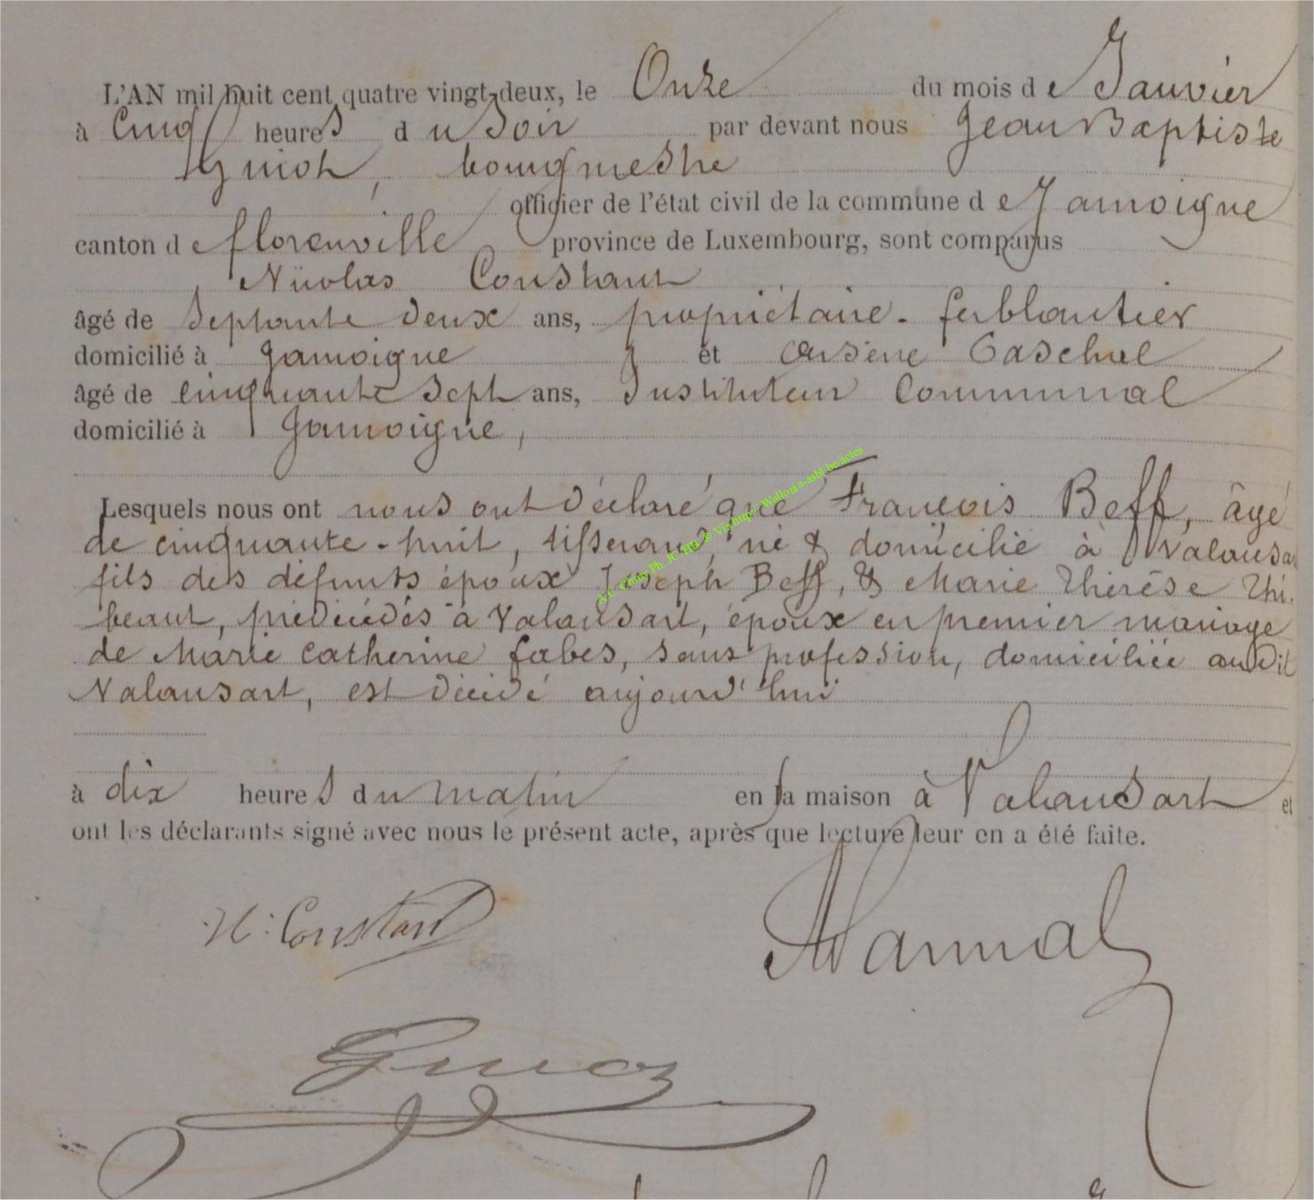 L'AN mil huit cent quatre vingt-deux, le Onze du mois de Janvier
à Cinq heures du Soir par devant nous Jean Baptiste
Guiot, bourgmestre
officier de l'état civil de la commune de Jamoigne
canton de florenville province de Luxembourg, sont comparus
Nicolas Constant
âgé de Septante deux ans, propriétaire. ferblantier
domicilié à Jamoigne et Arsène
âgé de cinquante Sept ans, Instituteur Communal
domicilié à Jamoigne,
Lesquels nous ont nous ont déclaré que François Beff, âgé
de cinquante-huit, tisserand, né & domicilié à Valansart
fils des défunts époux Joseph Beff, & Marie Thérèse Thi-
beaut, prédécédés à Valansart, époux en premier mariage
de Marie Catherine fabes, sans profession, domiciliée audit
Valansart, est décédé aujourd'hui
à dix heures du matin en sa maison à Valansart et
ont les déclarants signé avec nous le présent acte, après que lecture leur en a été faite.
N: Constant